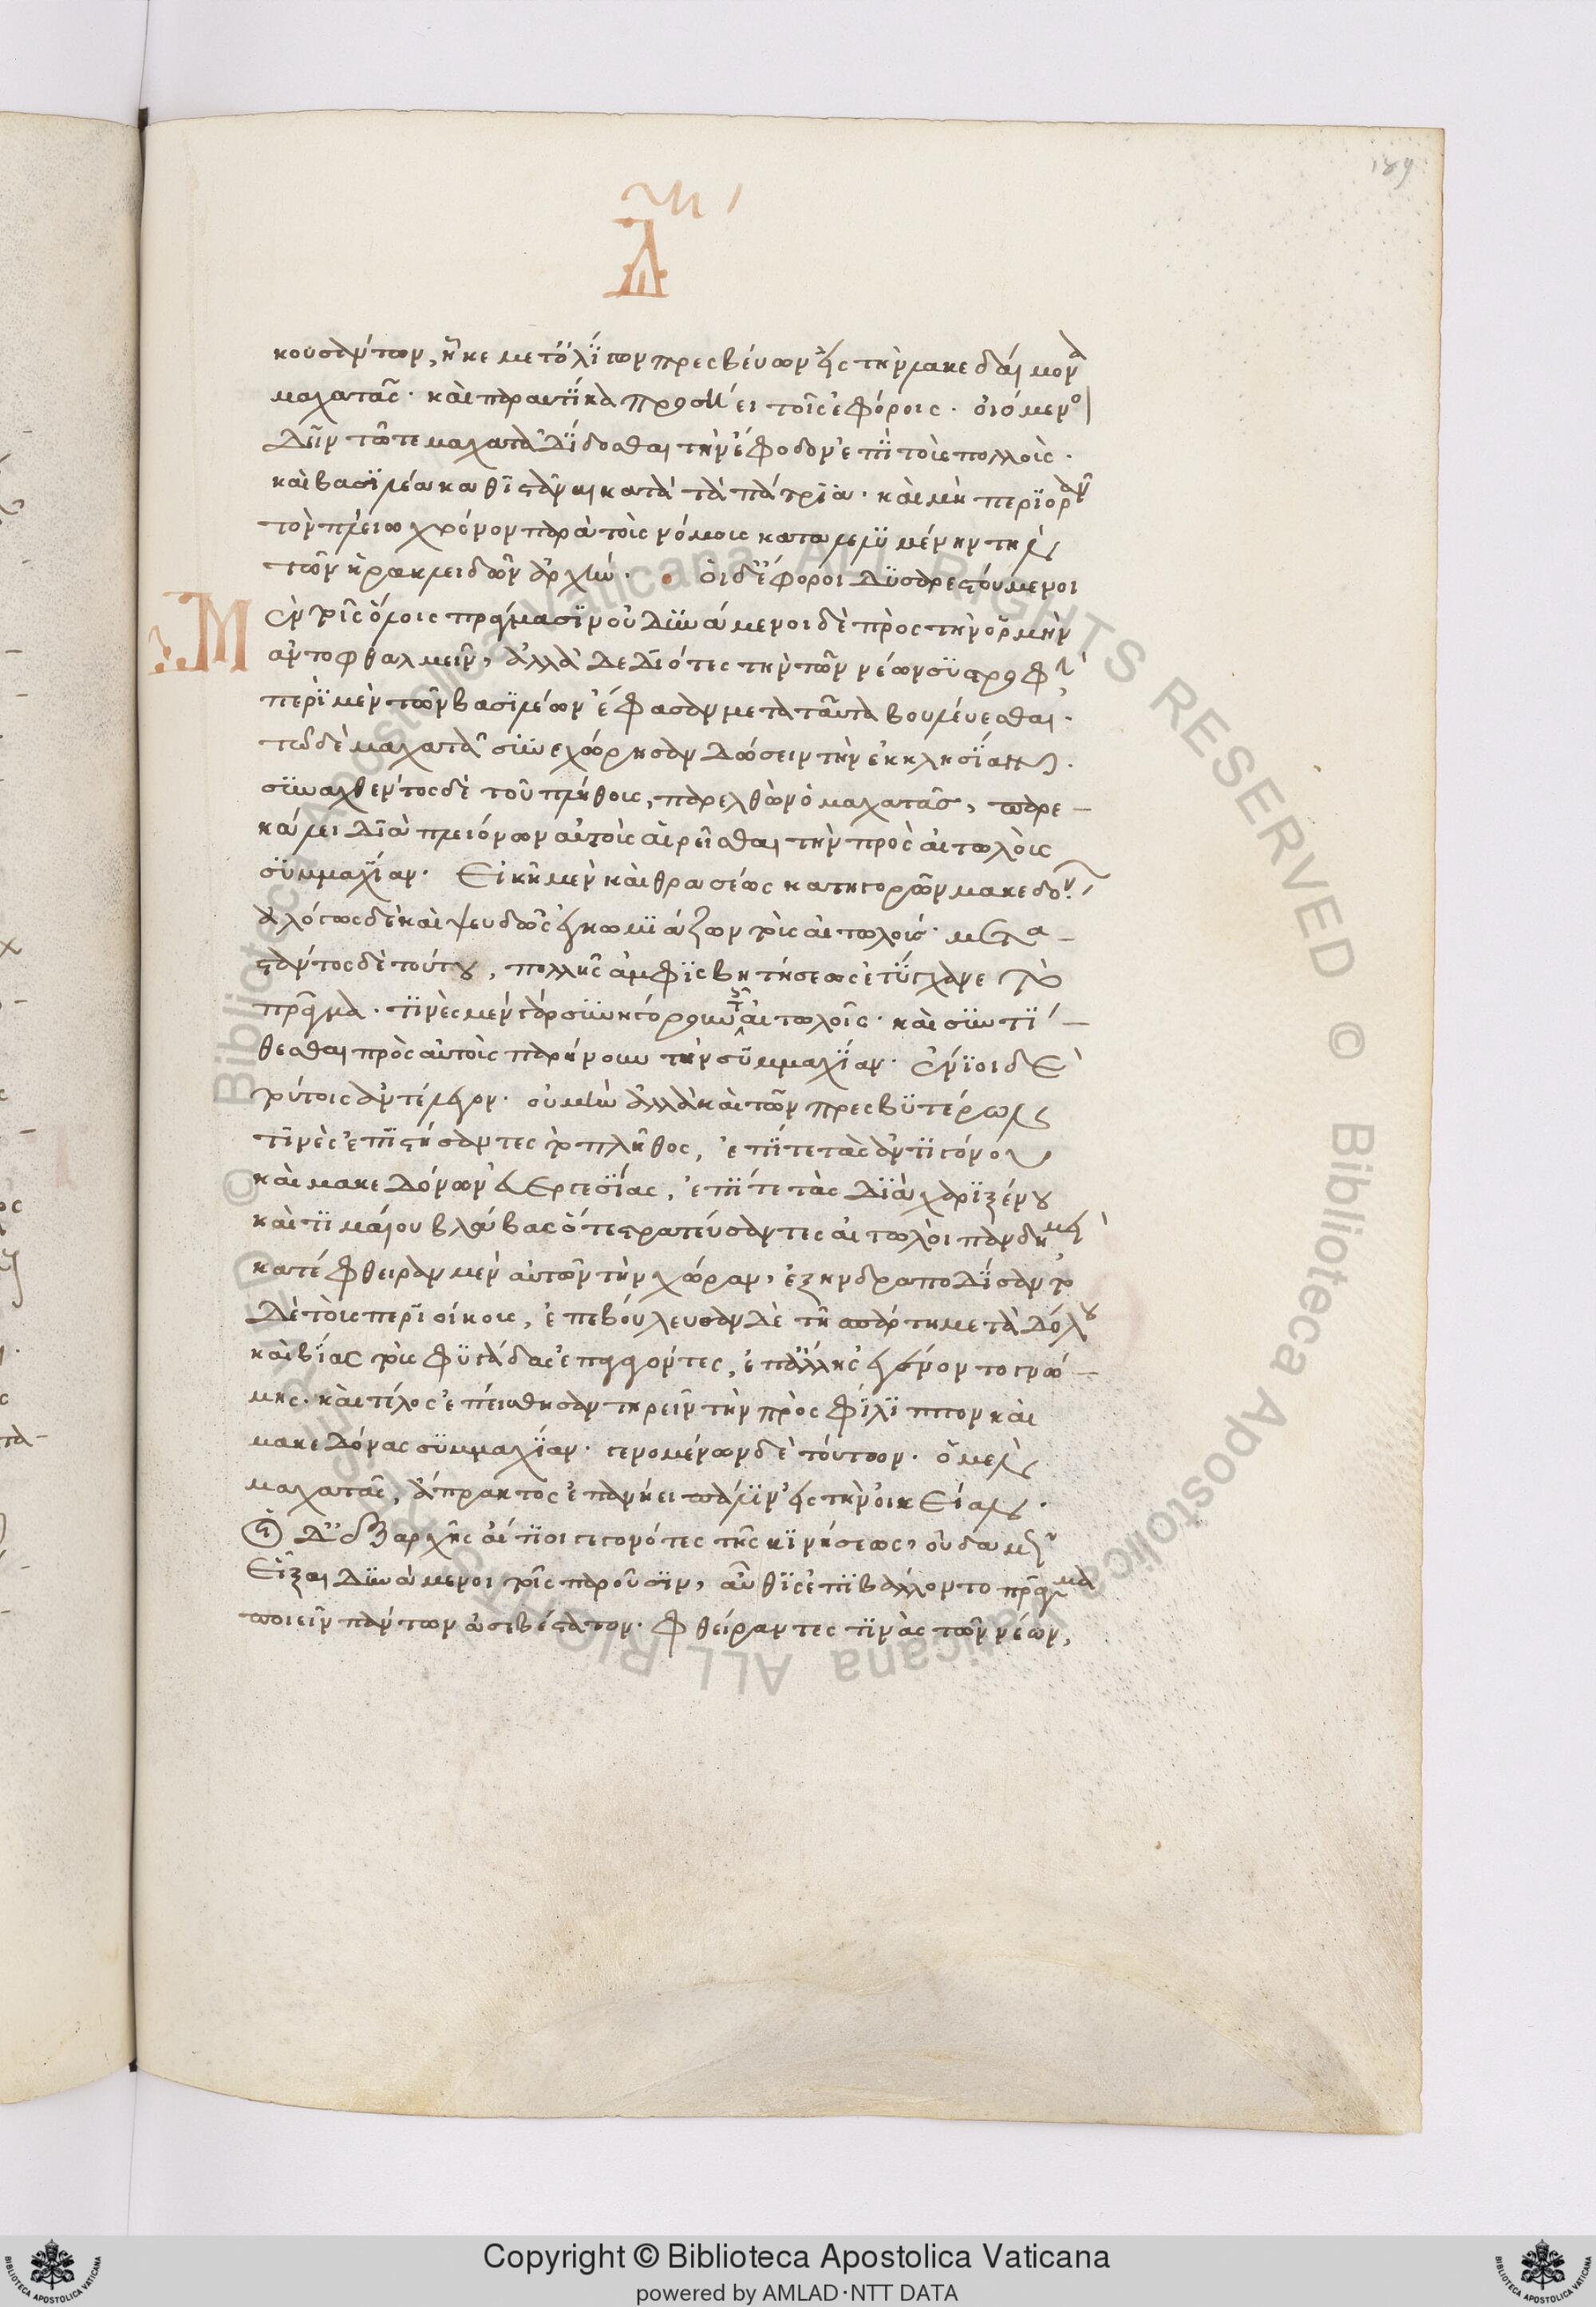 189
κουσάντων, ἧκε μετ' ὀλίγον πρεσβεύων εἰς τὴν λακεδαίμονα
μαχατᾶς. καὶ παραυτίκα προσῄει τοῖς ἐφόροις. οἰόμενο
δεῖν τῶ τε μαχατᾶ δίδοσθαι τὴν ἔφοδον ἐπὶ τοὺς πολλοὺς.
καὶ βασιλέα καθιστάναι κατὰ τὰ πάτρια. καὶ μὴ περιορᾶν
τὸν πλείω χρόνον παρὰ τοὺς νόμους καταλελυμένην τὴν
τῶν ἡρακλειδῶν ἀρχήν. οἱ δ' ἔφοροι δυσαρεστούμενοι
ἐν τοῖς ὅλοις πράγμασιν οὐ δυνάμενοι δὲ πρὸς τὴν ὁρμὴν
ἀντοφθαλμεῖν, ἀλλὰ δεδιότες τὴν τῶν νέων συστροφὴν
περὶ μὲν τῶν βασιλέων ἔφασαν μετὰ ταῦτα βουλεύεσθαι.
τῶ δὲ μαχατᾶ συνεχώρησαν δώσειν τὴν ἐκκλησίαν.
συναχθέντος δὲ τοῦ πλήθους, παρελθὼν ὁ μαχατᾶς, παρε
κάλει διὰ πλειόνων αὐτοὺς αἱρεῖσθαι τὴν πρὸς αἰτωλοὺς
συμμαχίαν. Εἰκῆ μὲν καὶ θρασέως κατηγορῶν μακεδόνων
ἀλόγως δὲ καὶ ψευδῶς ἐγκωμιάζων τοὺς αἰτωλούς. μετα
στάντος δὲ τούτου, πολλῆς ἀμφισβητήσεως ἐτύγχανε τὸ
πρᾶγμα. τινὲς μὲν γὰρ συνηγόρουν τοῖς αἰτωλοῖς. καὶ συντί
θεσθαι πρὸς αὐτοὺς παρῄνουν τὴν συμμαχίαν. ἔνιοι δὲ
τούτοις ἀντέλεγον. οὐ μὴν ἀλλὰ καὶ τῶν πρεσβυτέρων
τινὲς ἐπιστήσαντες τὸ πλῆθος, ἐπί τε τὰς ἀντιγόνου
καὶ μακεδόνων εὐεργεσίας, ἐπί τε τὰς διὰ χαριξένου
καὶ τιμαίου βλάβας ὅτε στρατεύσαντες αἰτωλοὶ πανδημεὶ
κατέφθειραν μὲν αὐτῶν τὴν χώραν, ἐξηνδραποδίσαντο
δὲ τοὺς περιοίκους, ἐπεβούλευσαν δὲ τῆ σπάρτη μετὰ δόλου
καὶ βίας τοὺς φυγάδας ἐπαγαγόντες, ἐπ' ἄλλης ἐγένοντο γνώ
μης. καὶ τέλος ἐπείσθησαν τηρεῖν τὴν πρὸς φίλιππον καὶ
μακεδόνας συμμαχίαν. γενομένων δὲ τούτων. ὁ μὲν
μαχατᾶς, ἄπρακτος ἐπανῄει πάλιν εἰς τὴν οἰκείαν.
οἱ δ' ἐξ ἀρχῆς αἴτιοι γεγονότες τῆς κινήσεως, οὐδαμῶς
Εἶξαι δυνάμενοι τοῖς παροῦσιν, αὖθις ἐπιβάλλοντο πρᾶγμα
ποιεῖν πάντων ἀσεβέστατον. φθείραντες τινὰς τῶν νέων,
Copyright © Biblioteca Apostolica Vaticana
powered by AMLAD·NTT DATA